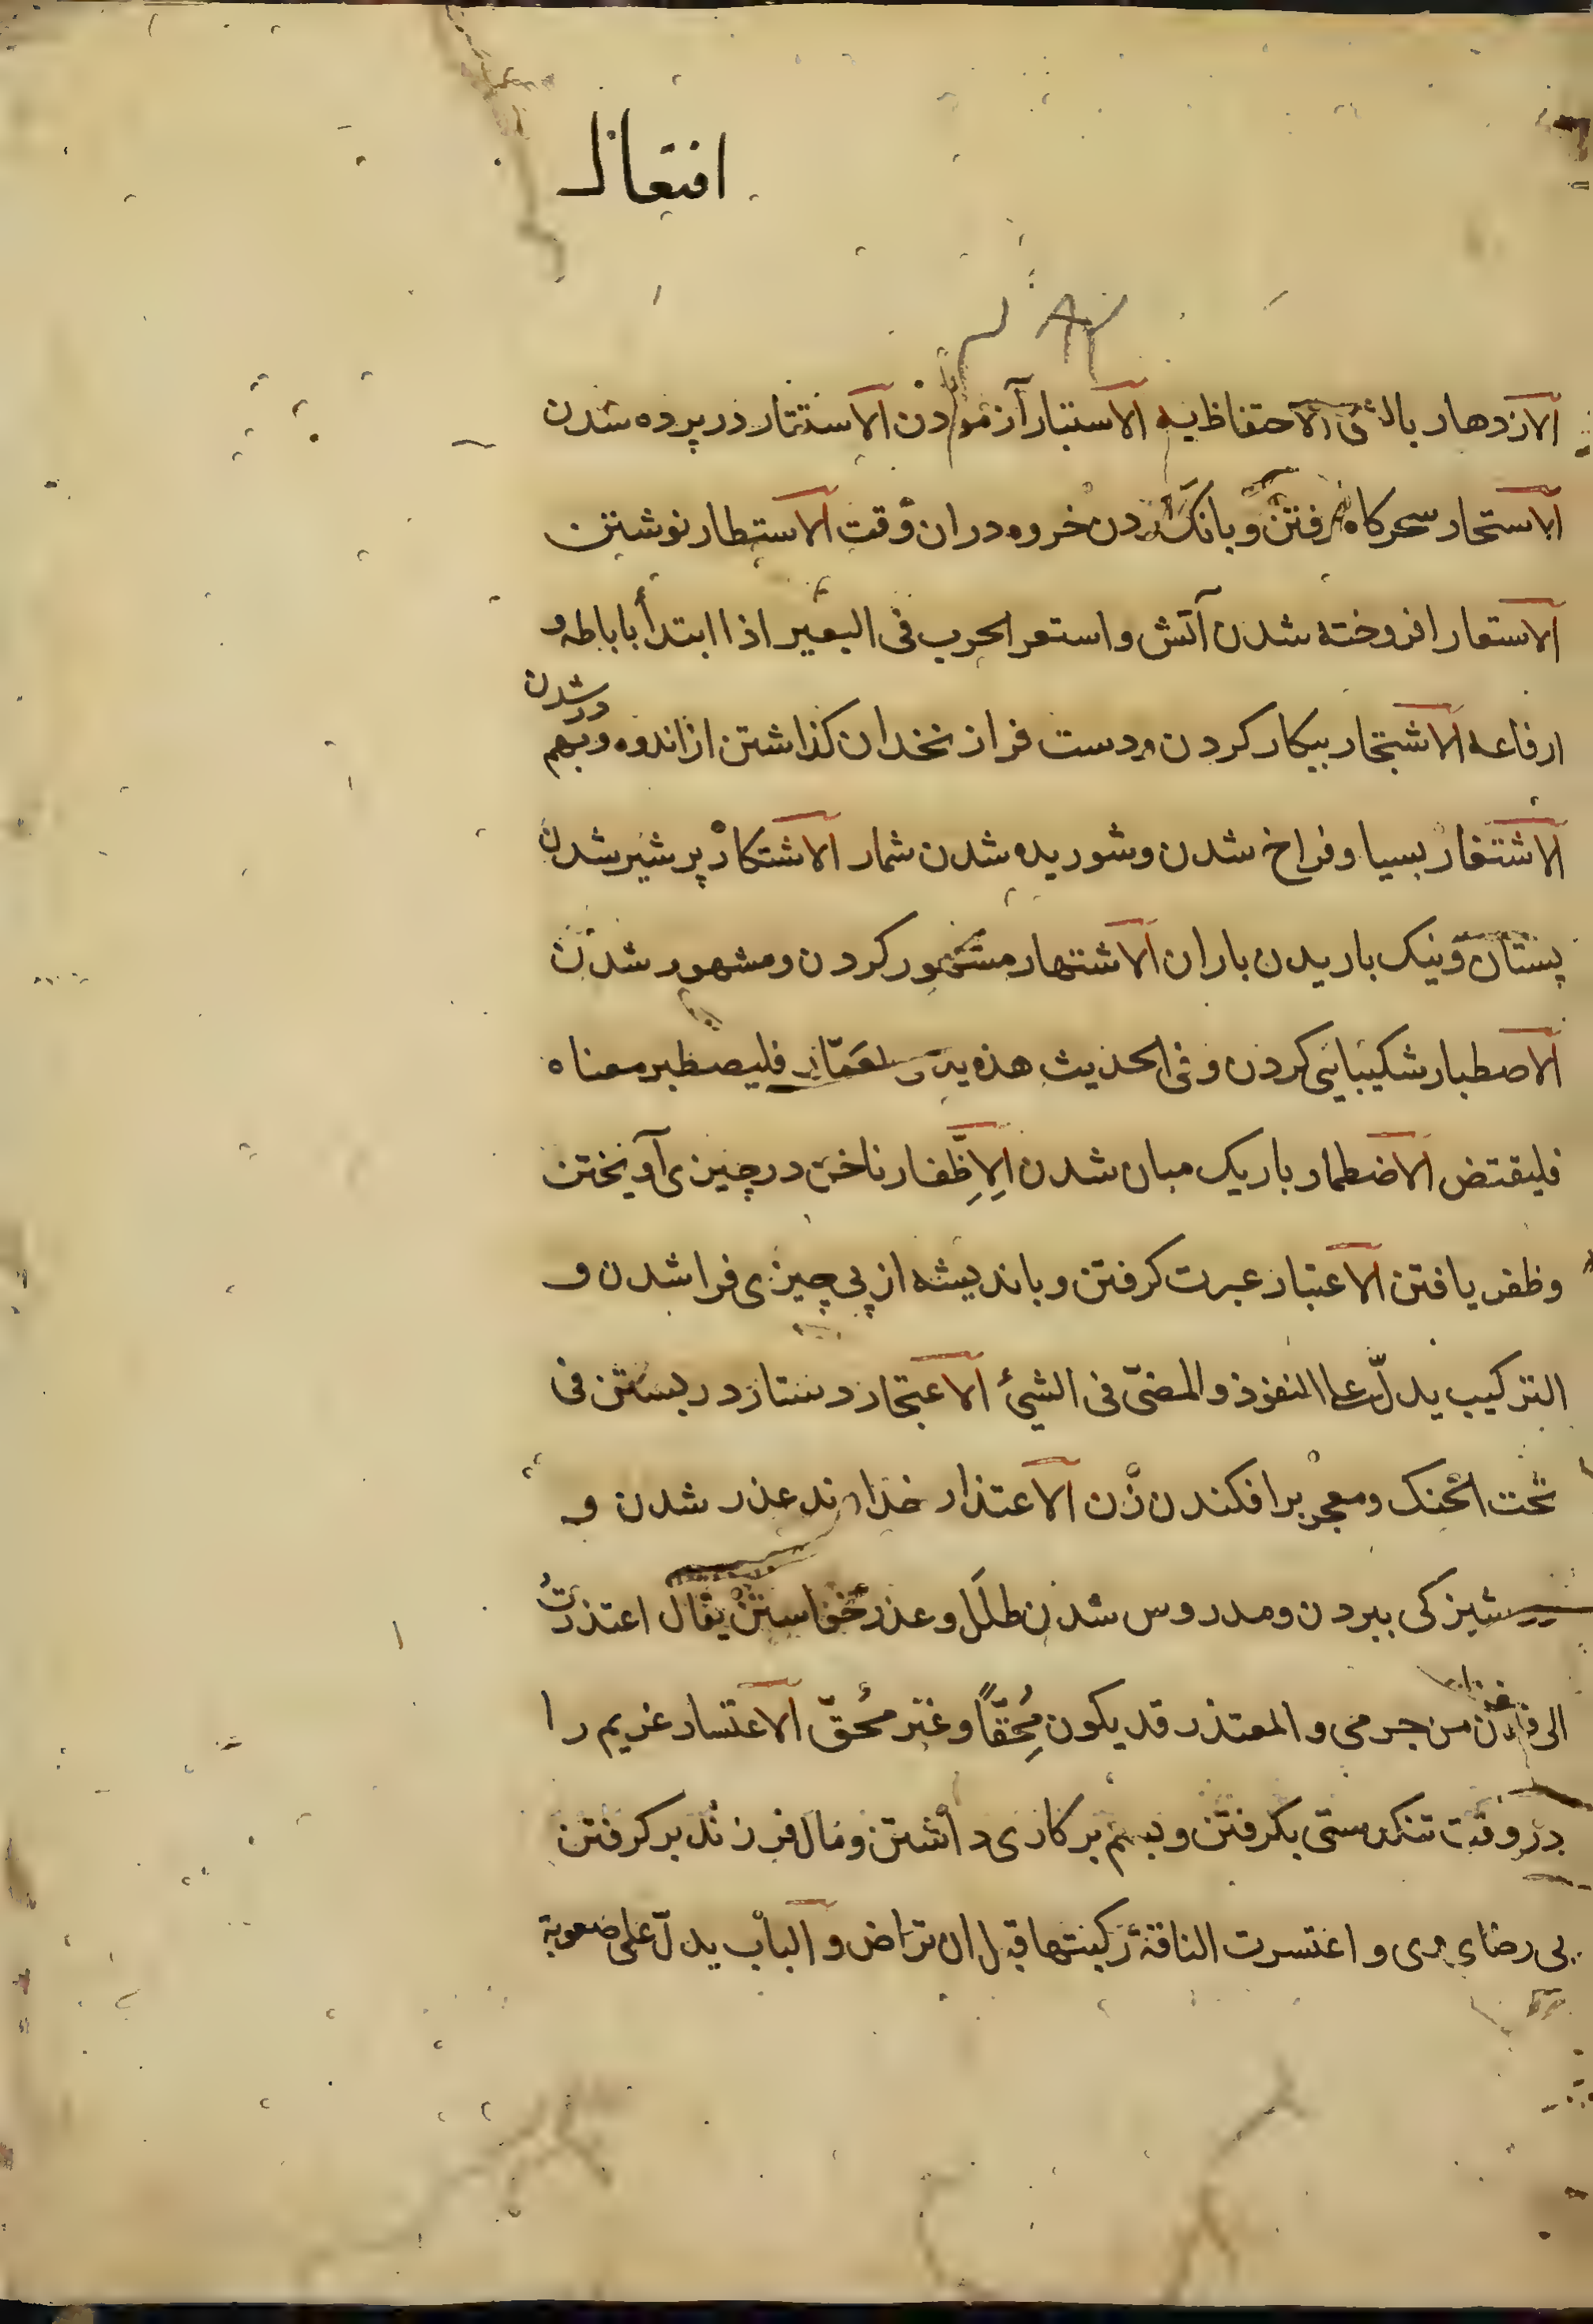 افتعال
الازدهار بالشئ الاحتفاظ به الاستبار آزمودن الاستتار در پرده شدن
الاستحار سحرکاه رفتن و بانک کردن خروه در ان وقت الاستطار نوشتن
الاستعار افروخته شدن آتش و استعر الجرب فی البعیر اذا ابتدأ باباطه و
ارفاغه الاشتجار بیکار کردن و دست فرا زنخدان کذاشتن از اندوه و بهم
در شدن
الاشتغار بسیا و فراخ شدن و شوریده شدن شمار الاشتکار پر شیر شدن
پستان و نیک باریدن باران الاشتهار مشهور کردن و مشهور شدن
الاصطبار شکیبایی کردن و فی الحدیث هذه یدی لعمار فلیصطبر معناه
فلیقتض الاضطمار باریک میان شدن الاظفار ناخن در چیزی آویختن
و ظفر یافتن الاعتبار عبرت کرفتن و باندیشه از پی چیزی فرا شدن و
الترکیب یدل علی النفوذ و المضی فی الشیئ الاعتجار دستار در بستن فی
تحت الحنک و معجر بر افکندن زن الاعتذار خداوند عذر شدن و
شیزکی ببردن و مدروس شدن طلل و عذر خواستن یقال اعتذرت
الی فلان من جرمی و المعتذر قد یکون مُحِقّاً و غیر مُحقّ الاعتسار غریم را
در وقت تنکدستی بکرفتن و بستم بر کاری داشتن و مال فرزند بر کرفتن
بی رضای وی و اعتسرت الناقة رکبتها قبل ان تراض و الباب یدل علی صعوبة